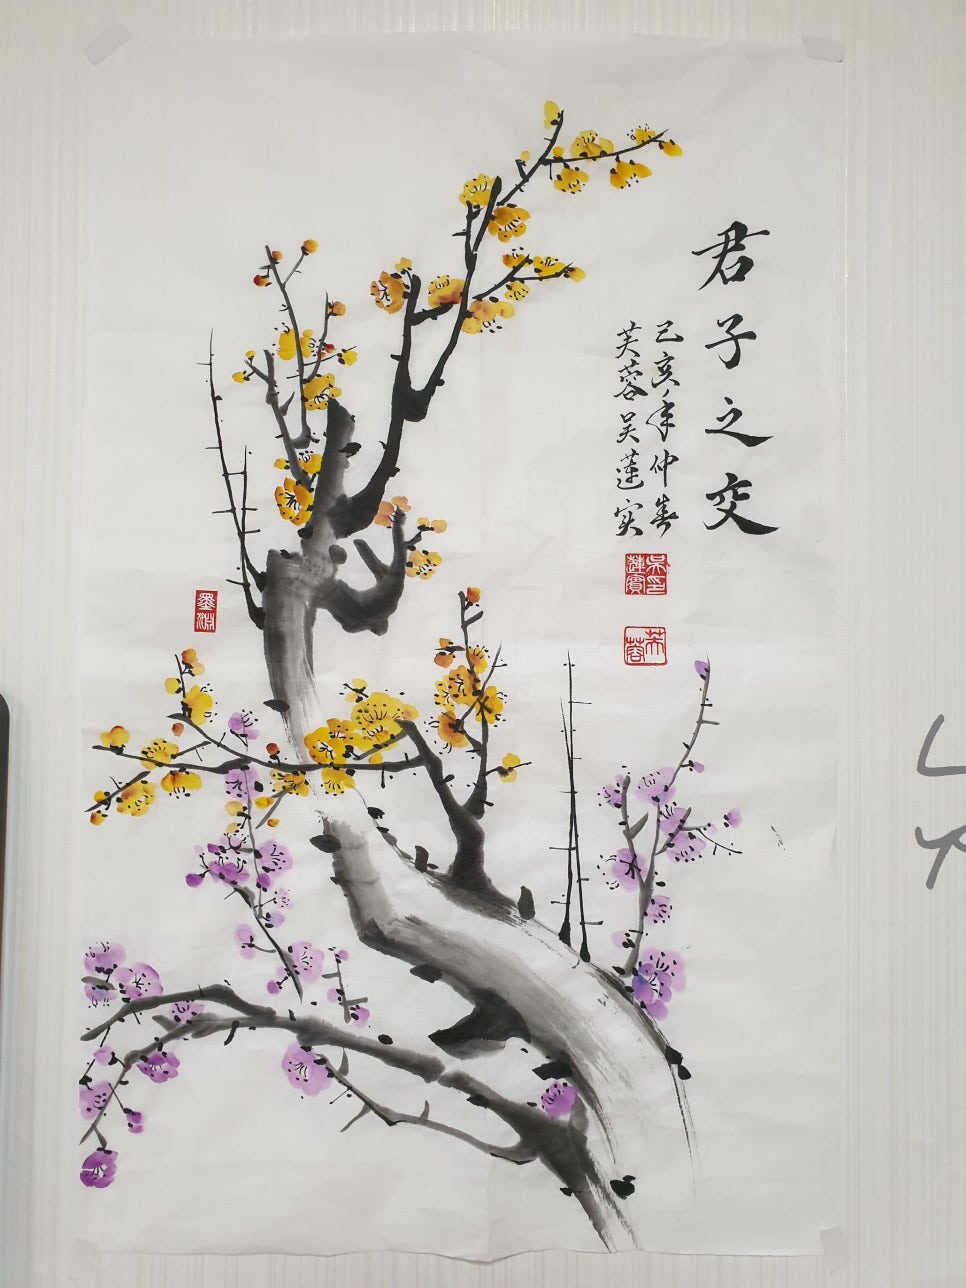 君子之交
己亥年仲春
芙蓉吴莲实
吴印蓮賓
芙蓉
墨淵